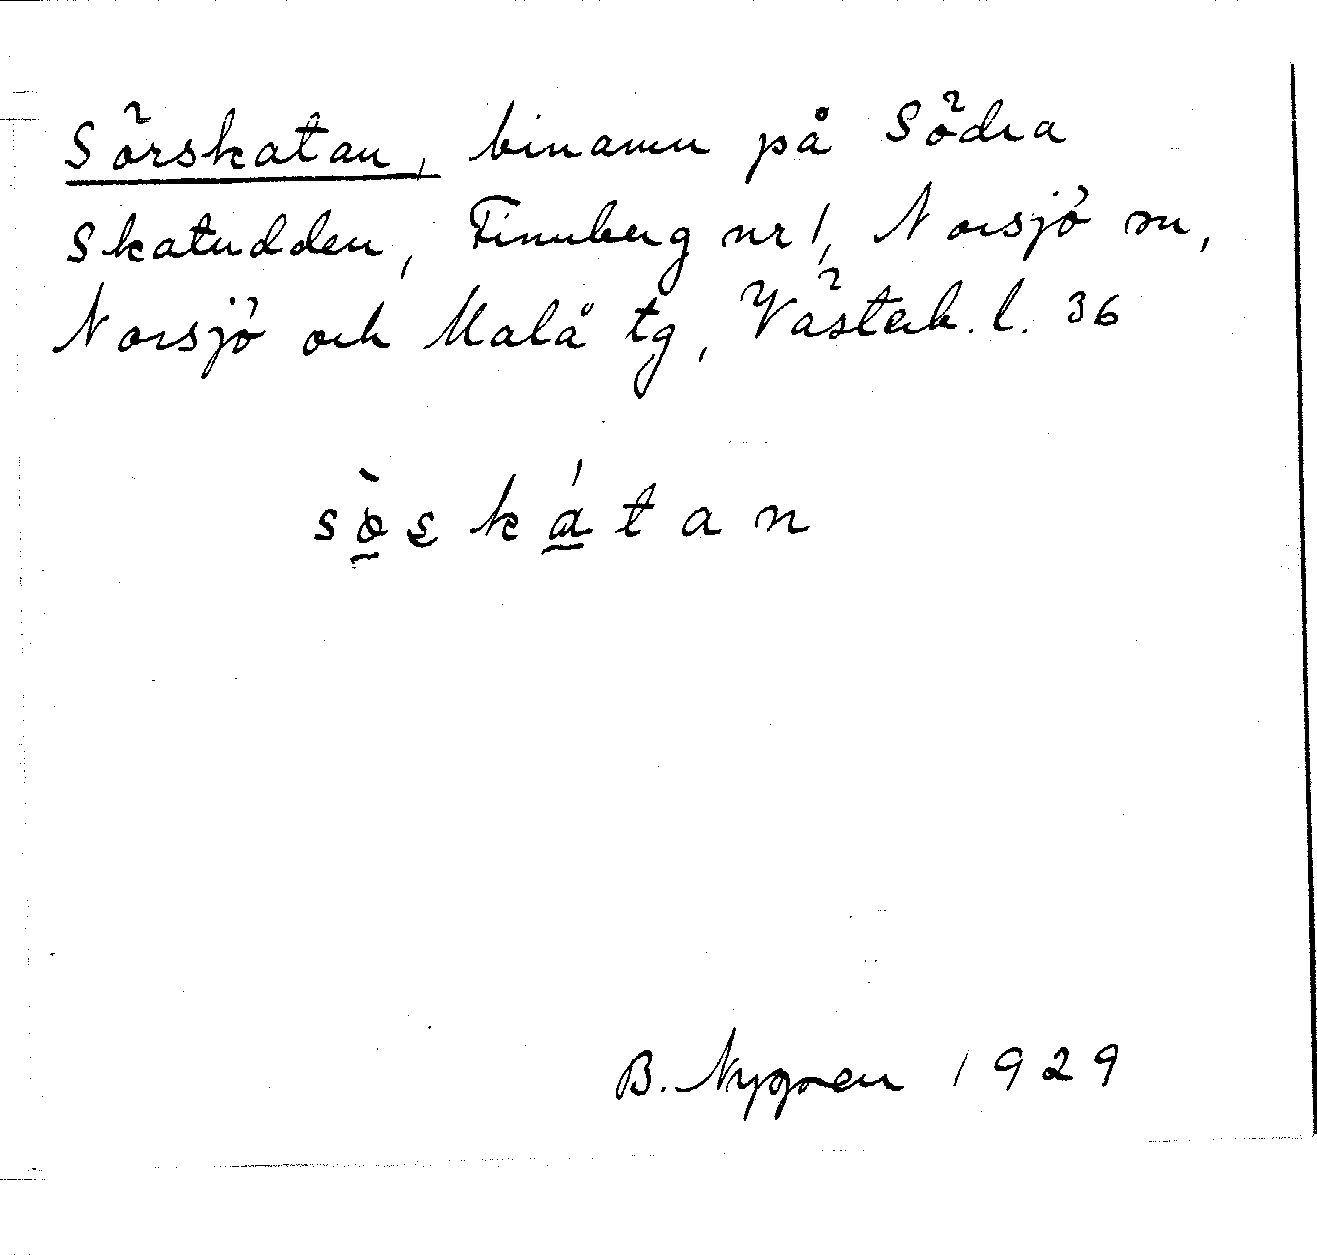 Sörskatan, binamn på Södra
Skatudden, Finnberg nr 1, Norsjö sn,
Norsjö och Malå tg, Västerb. l. 36
sòskátan
B. Nygren 1929